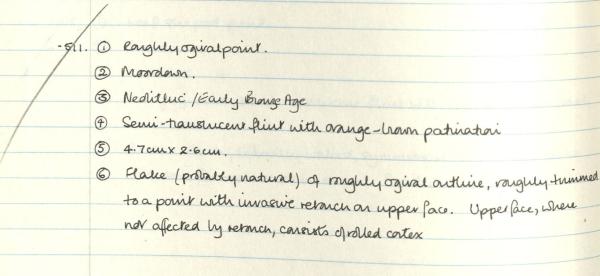 -511. ① Roughly ogival point.
② Moordown.
③ Neolithic / Early Bronze Age
④ Semi-translucent flint with orange-brown patination
⑤ 4.7cm x 2.6cm.
⑥ Flake (probably natural) of roughly ogival outline, roughly trimmed
to a point with invasive retouch on upper face. Upper face, where
not affected by retouch, consists of rolled cortex